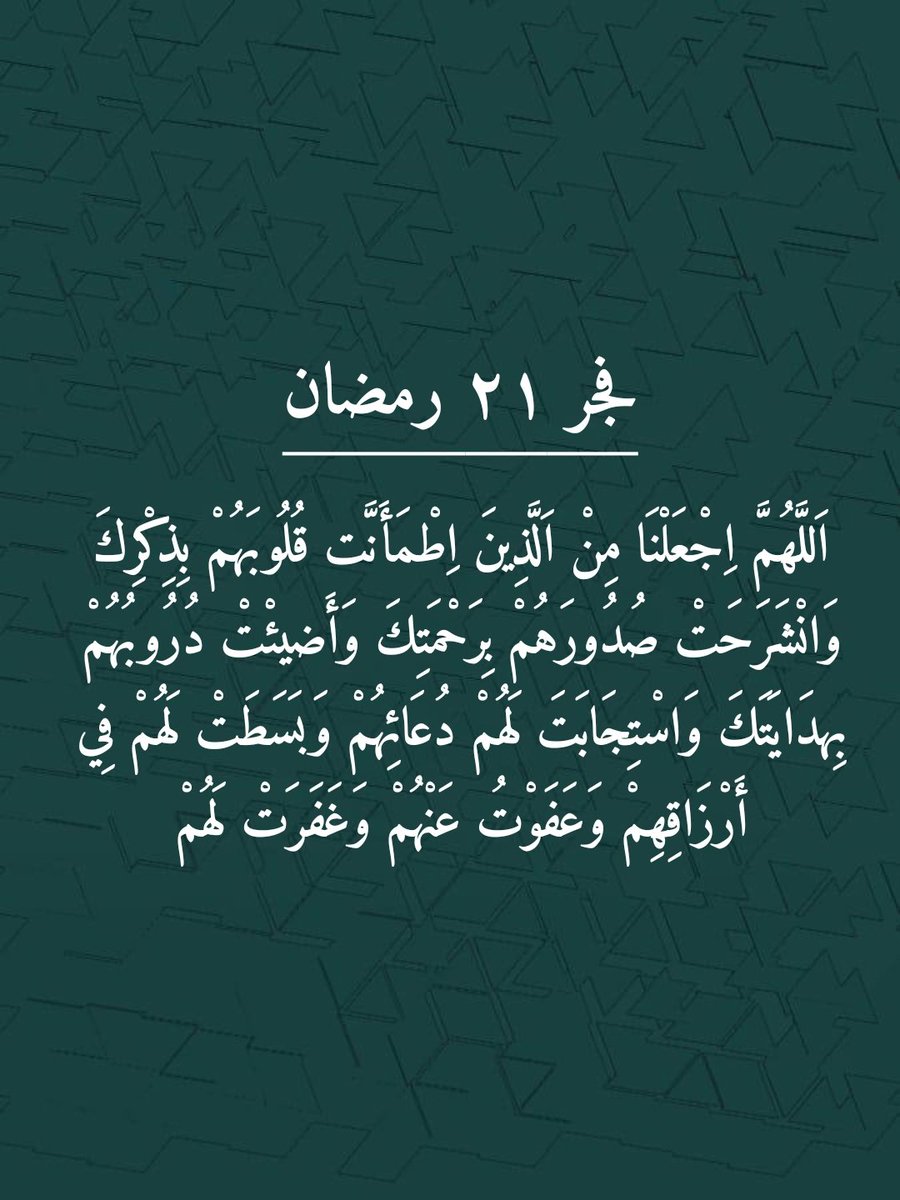 فجر ٢١ رمضان
اَللَّهُمَّ اِجْعَلْنَا مِنْ اَلَّذِينَ اِطْمَأَنَّت قُلُوبَهُمْ بِذِكْرِكَ
وَانْشَرَحَتْ صُدُورَهُمْ بِرَحْمَتِكَ وَأَضيئْتْ دُرُوبُهُمْ
بِهِدَايَتَكَ وَاسْتِجَابَتَ لَهُمْ دُعَائِهُمْ وَبَسَطَتْ لَهُمْ فِي
أَرْزَاقِهِمْ وَعَفَوْتُ عَنْهُمْ وَغَفَرَتْ لَهُمْ